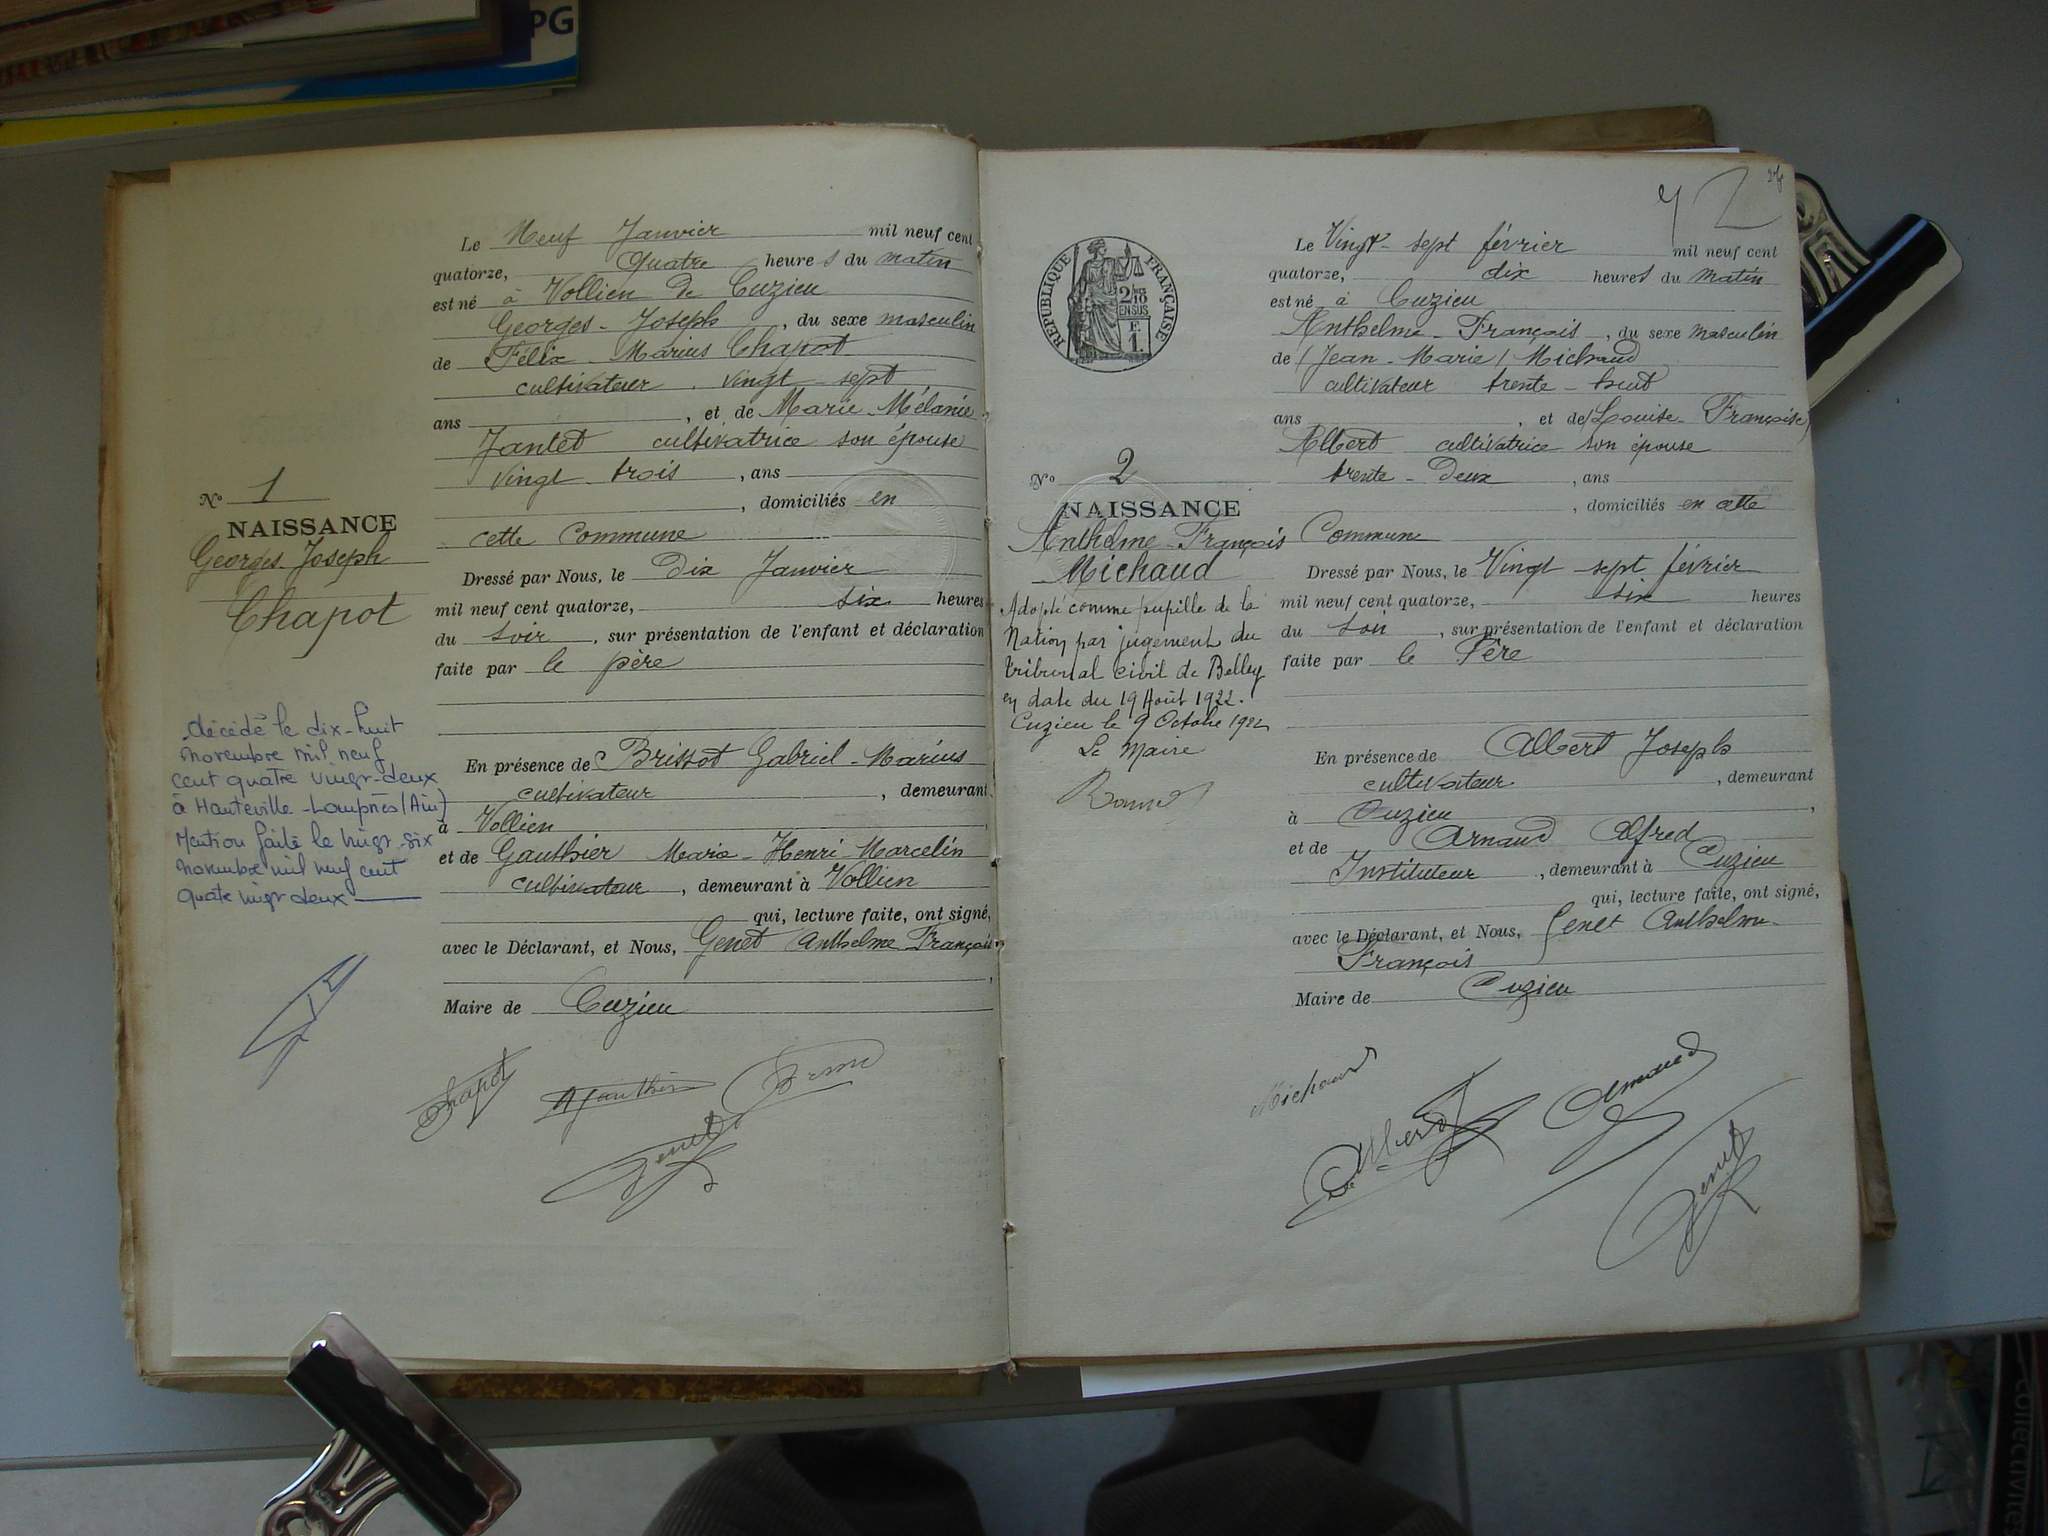 PG
Le Neuf Janvier mil neuf cent
quatorze, Quatre heures du matin
est né à Vollien de Cuzieu
Georges-Joseph, du sexe masculin
de Félix-Marius Chapot
cultivateur, vingt-sept
ans, et de Marie-Mélanie
Jantet cultivatrice son épouse
vingt-trois, ans
, domiciliés en
cette Commune
N° 1
NAISSANCE
Georges Joseph
Chapot
Dressé par Nous, le Dix Janvier
mil neuf cent quatorze, six heures
du soir, sur présentation de l'enfant et déclaration
faite par le père
En présence de Brissot Gabriel-Marius
cultivateur, demeurant
à Vollien
et de Gauthier Marie-Henri-Marcelin
cultivateur, demeurant à Vollien
qui, lecture faite, ont signé,
avec le Déclarant, et Nous, Genet Anthelme François
,
Maire de Cuzieu
décédé le dix-huit
novembre mil neuf
cent quatre vingt-deux
à Hauteville-Lompnès (Ain)
Mention faite le vingt-six
novembre mil neuf cent
quatre vingt deux
Chapot
Gauthier
Genet
72
REPUBLIQUE FRANÇAISE
2/10
EN SUS
F.
1.
Le Vingt-sept février mil neuf cent
quatorze, dix heures du matin
est né à Cuzieu
Anthelme-François, du sexe masculin
de (Jean-Marie) Michaud
cultivateur trente-huit
ans, et de (Louise-Françoise)
Albert cultivatrice son épouse
trente-deux, ans
, domiciliés en cette
Commune
N° 2
NAISSANCE
Anthelme-François
Michaud
Adopté comme pupille de la
Nation par jugement du
tribunal civil de Belley
en date du 19 Août 1922.
Cuzieu le 9 Octobre 1922
Le Maire
Dressé par Nous, le Vingt sept février
mil neuf cent quatorze, six heures
du soir, sur présentation de l'enfant et déclaration
faite par le Père
En présence de Albert Joseph
cultivateur, demeurant
à Cuzieu,
et de Arnaud Alfred
Instituteur, demeurant à Cuzieu
qui, lecture faite, ont signé,
avec le Déclarant, et Nous, Genet Anthelme-
François
Maire de Cuzieu
Michaud
Albert
Arnaud
Genet